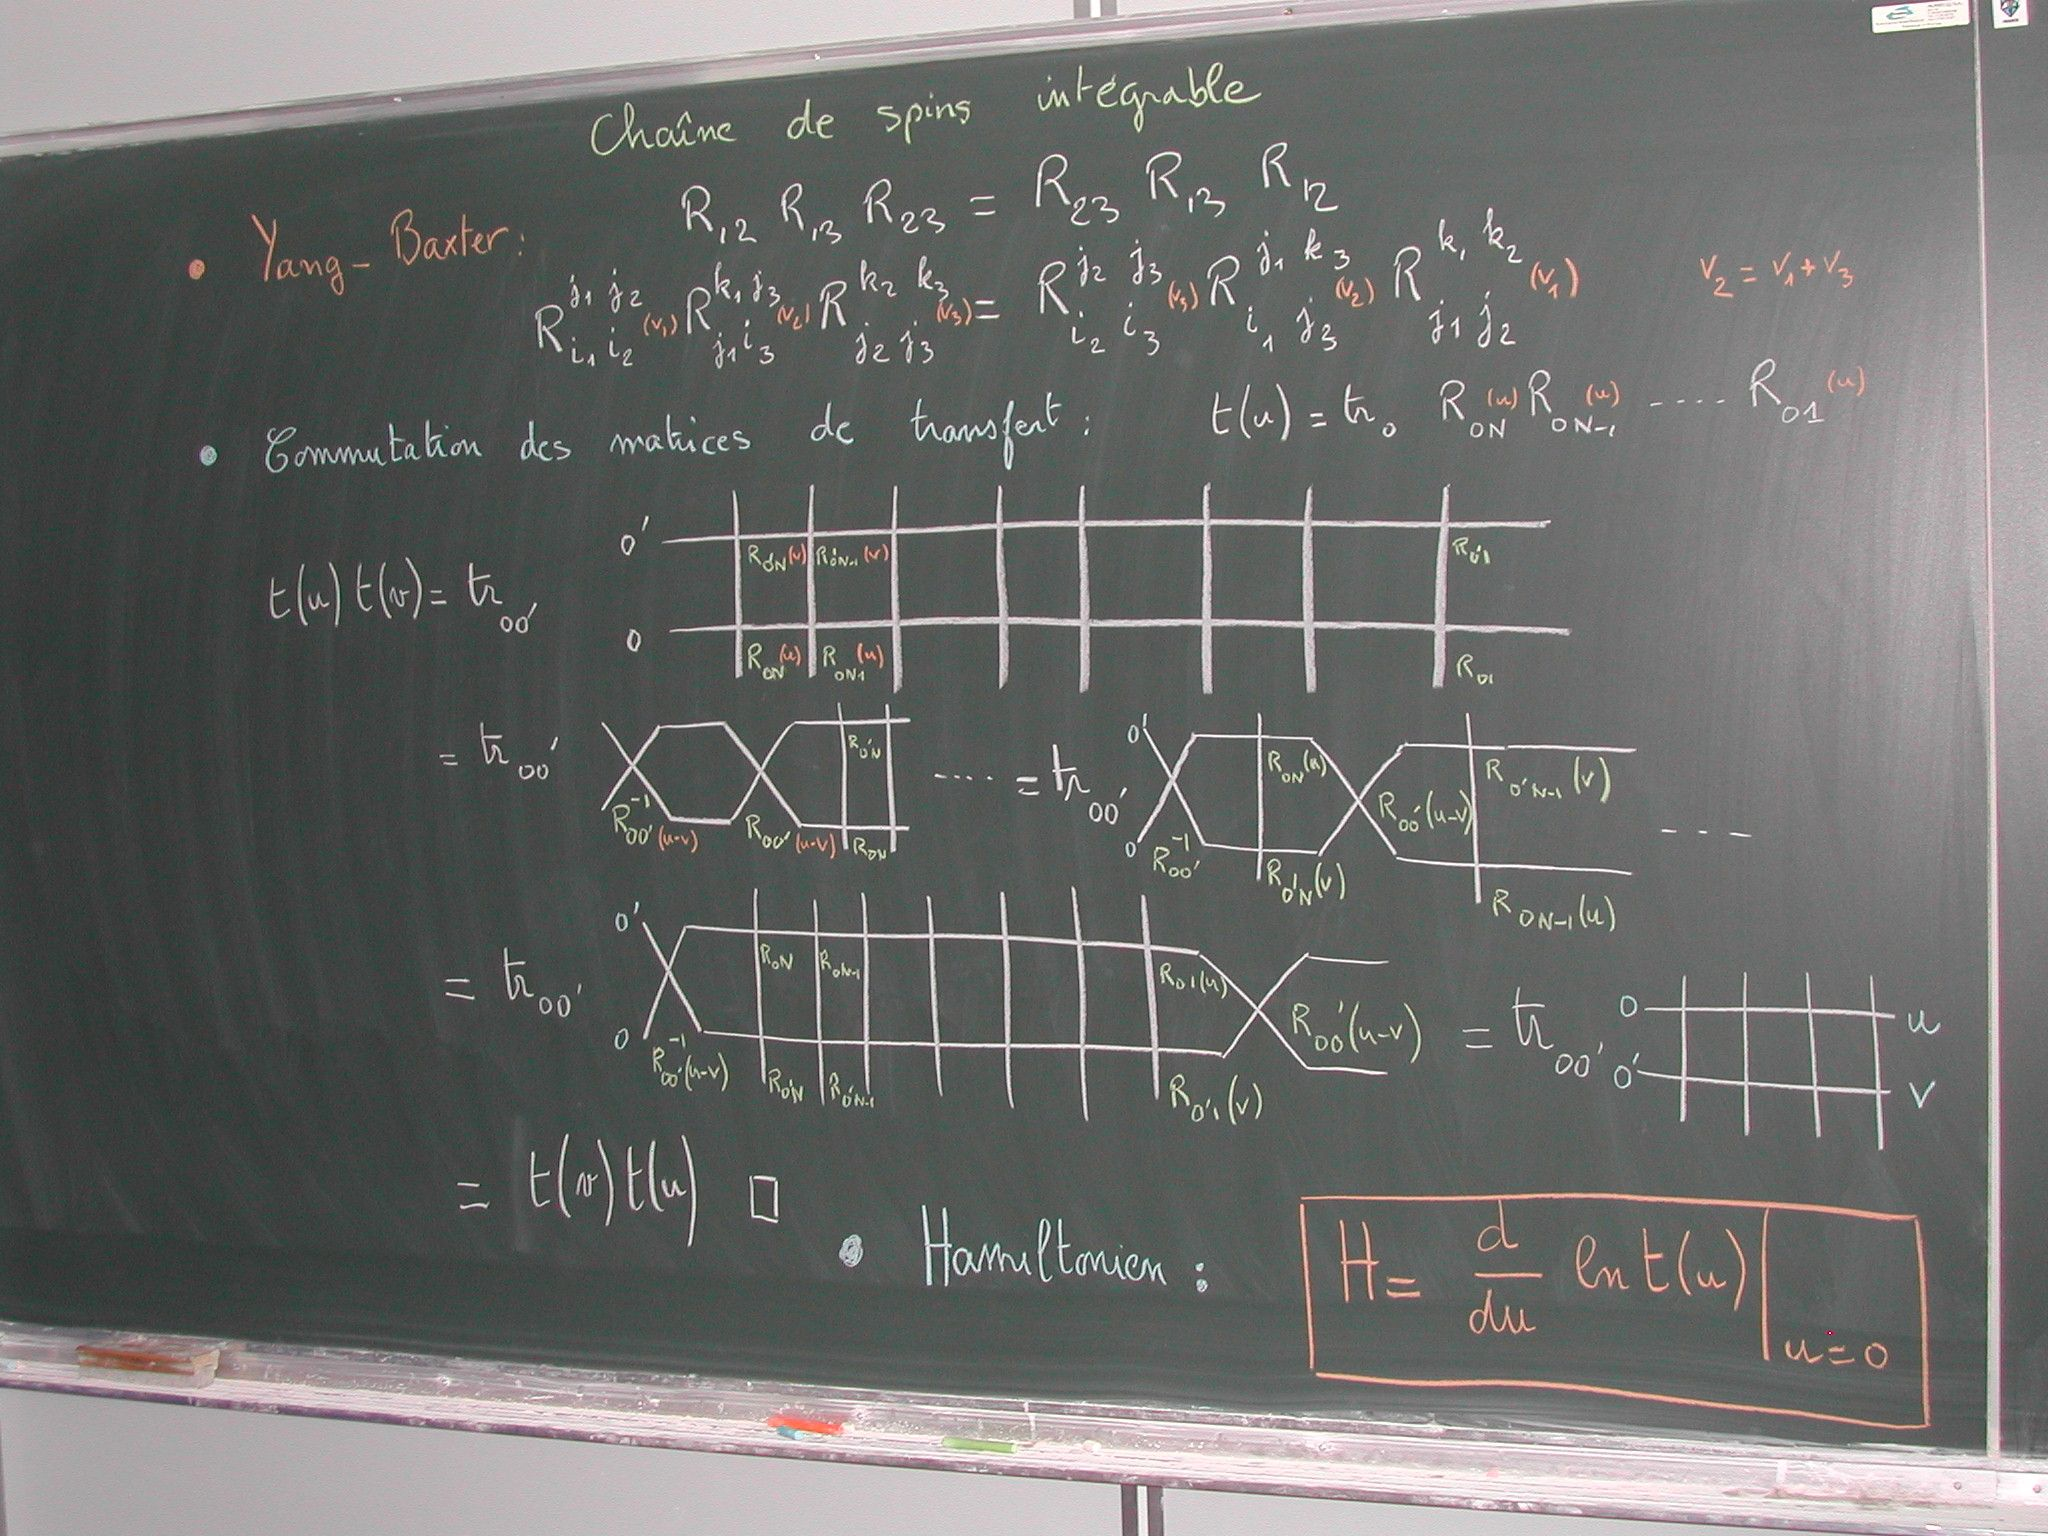 Chaîne de spins intégrable
• Yang-Baxter: R₁₂ R₁₃ R₂₃ = R₂₃ R₁₃ R₁₂
R_{i₁ i₂}^{j₁ j₂}(v₁) R_{j₁ i₃}^{k₁ j₃}(v₂) R_{j₂ j₃}^{k₂ k₃}(v₃) = R_{i₂ i₃}^{j₂ j₃}(v₃) R_{i₁ j₃}^{j₁ k₃}(v₂) R_{j₁ j₂}^{k₁ k₂}(v₁) v₂ = v₁ + v₃
• Commutation des matrices de transfert: t(u) = tr₀ R_{0N}(u) R_{0N-1}(u) ---- R_{01}(u)
0'
R_{0'N}(v) R_{0'N-1}(v) R_{0'1}
t(u) t(v) = tr_{00'}
0
R_{0N}(u) R_{0N-1}(u) R_{01}
= tr_{00'} R_{00'}^{-1}(u-v) R_{00'}(u-v) R_{0'N} R_{0N} ---- = tr_{00'} 0' 0 R_{00'}^{-1} R_{0N}(u) R_{0'N}(v) R_{00'}(u-v) R_{0'N-1}(v) R_{0N-1}(u) ----
= tr_{00'} 0' 0 R_{00'}^{-1}(u-v) R_{0N} R_{0N-1} R_{0'N} R_{0'N-1} R_{01}(u) R_{0'1}(v) R_{00'}(u-v) = tr_{00'} 0 u 0' v
= t(v) t(u) □
• Hamiltonien: H = d/du ln t(u)|_{u=0}